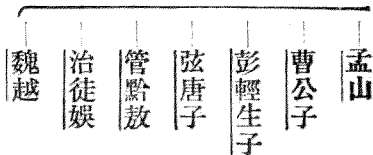 孟山
曹公子
彭輕生子
弦唐子
管黔敖
治徒娛
魏越